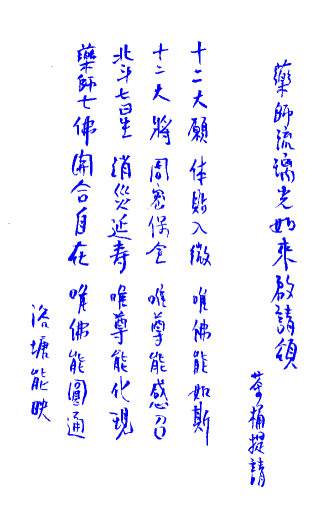 藥師琉璃光如來啟請頌
桶提請
十二大願 体貼入微 唯佛能如斯
十二大將 周密保全 唯尊能感召
北斗七星 消災延寿 唯尊能化現
藥師七佛 開合自在 唯佛能圓通
洛塘能映